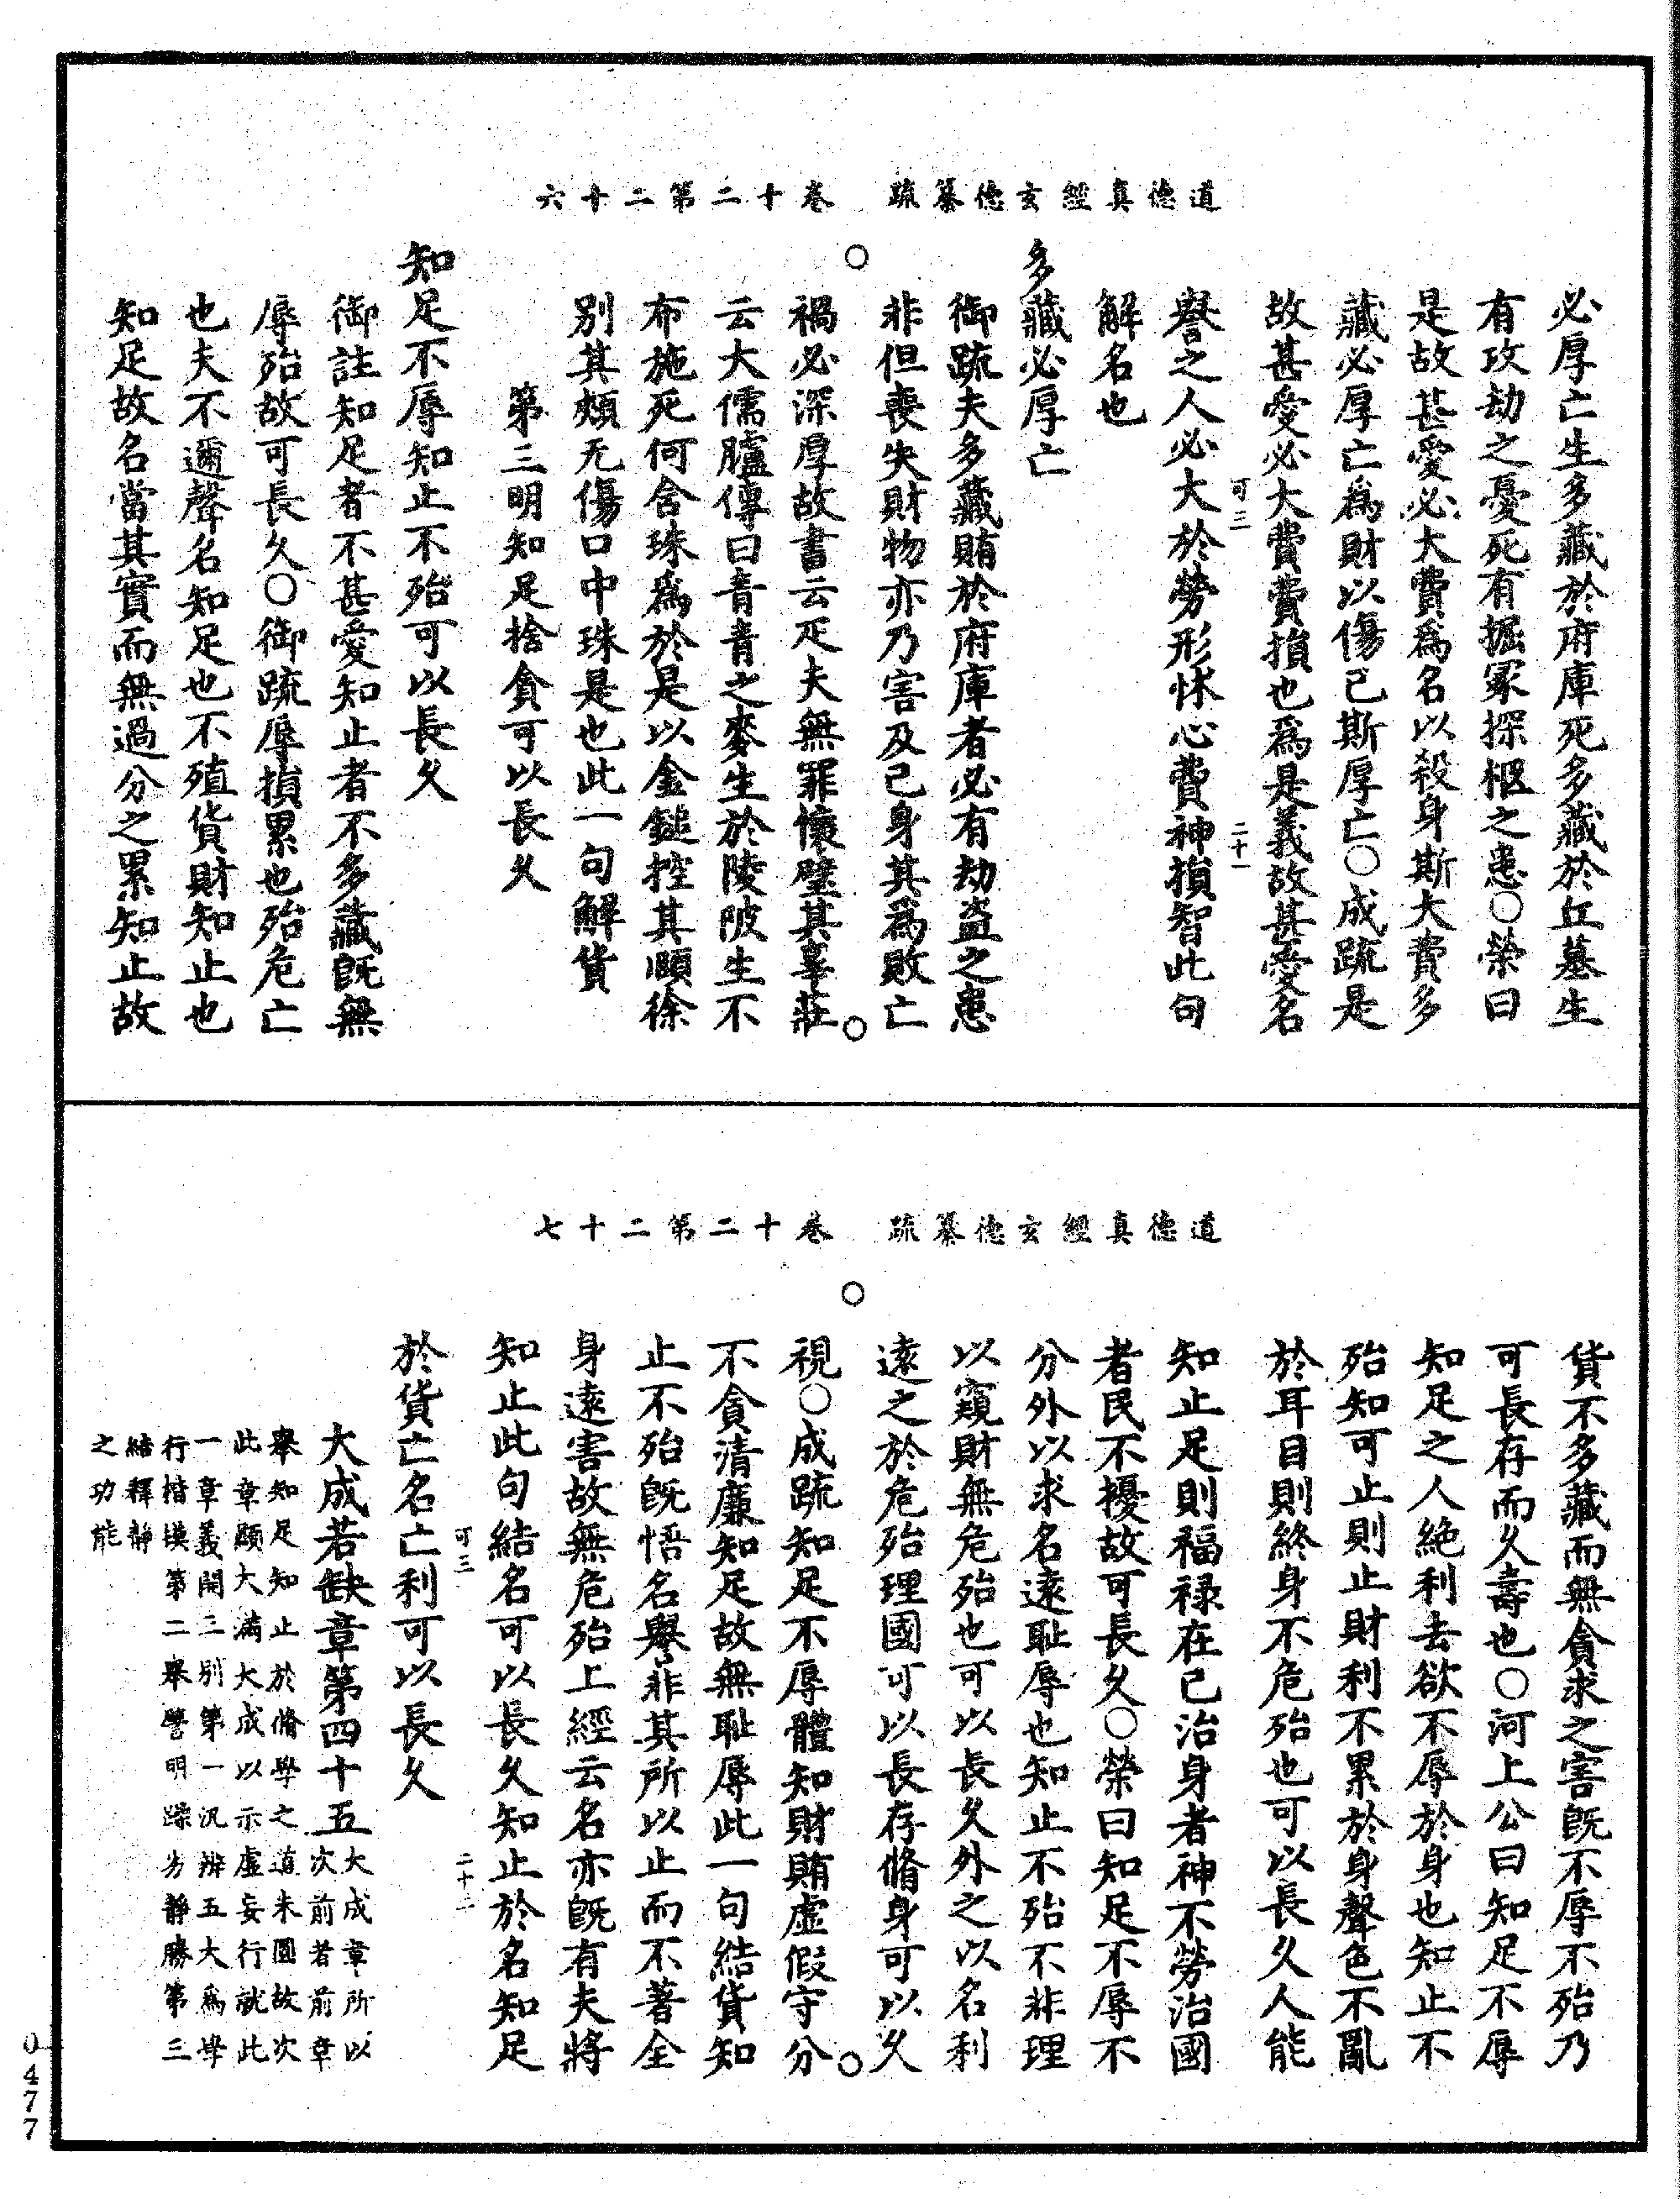 道德真經玄德纂疏　卷十二第二十六
必厚亡生多藏於府庫死多藏於丘墓生
有攻劫之憂死有掘冢探柩之患○榮曰
是故甚愛必大費爲名以殺身斯大費多
藏必厚亡爲財以傷己斯厚亡○成疏是
故甚愛必大費費損也爲是義故甚愛名
可三　二十一
譽之人必大於勞形怵心費神損智此句
解名也
多藏必厚亡
御疏夫多藏賄於府庫者必有劫盜之患
非但喪失財物亦乃害及己身其爲敗亡
禍必深厚故書云疋夫無罪懷璧其辜莊
云大儒臚傳曰青青之麥生於陵陂生不
布施死何含珠爲於是以金鎚控其頤徐
別其頰无傷口中珠是也此一句解貨
第三明知足捨貪可以長久
知足不辱知止不殆可以長久
御註知足者不甚愛知止者不多藏既無
辱殆故可長久○御疏辱損累也殆危亡
也夫不邇聲名知足也不殖貨財知止也
知足故名當其實而無過分之累知止故
道德真經玄德纂疏　卷十二第二十七
貨不多藏而無貪求之害既不辱不殆乃
可長存而久壽也○河上公曰知足不辱
知足之人絶利去欲不辱於身也知止不
殆知可止則止財利不累於身聲色不亂
於耳目則終身不危殆也可以長久人能
知止足則福祿在己治身者神不勞治國
者民不擾故可長久○榮曰知足不辱不
分外以求名遠耻辱也知止不殆不非理
以窺財無危殆也可以長久外之以名利
遠之於危殆理國可以長存脩身可以久
視○成疏知足不辱體知財賄虛假守分
不貪清廉知足故無耻辱此一句結貨知
止不殆既悟名譽非其所以止而不著全
身遠害故無危殆上經云名亦既有夫將
知止此句結名可以長久知止於名知足
可三　二十二
於貨亡名亡利可以長久
大成若缺章第四十五大成章所以
次前者前章
舉知足知止於脩學之道未圓故次
此章顯大滿大成以示虛妄行就此
一章義開三別第一汎辨五大爲學
行楷摸第二舉譬明躁劣靜勝第三
結釋靜
之功能
0477